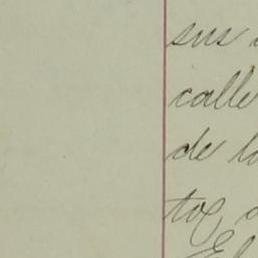 sus
calle
de lo
tos, a
El